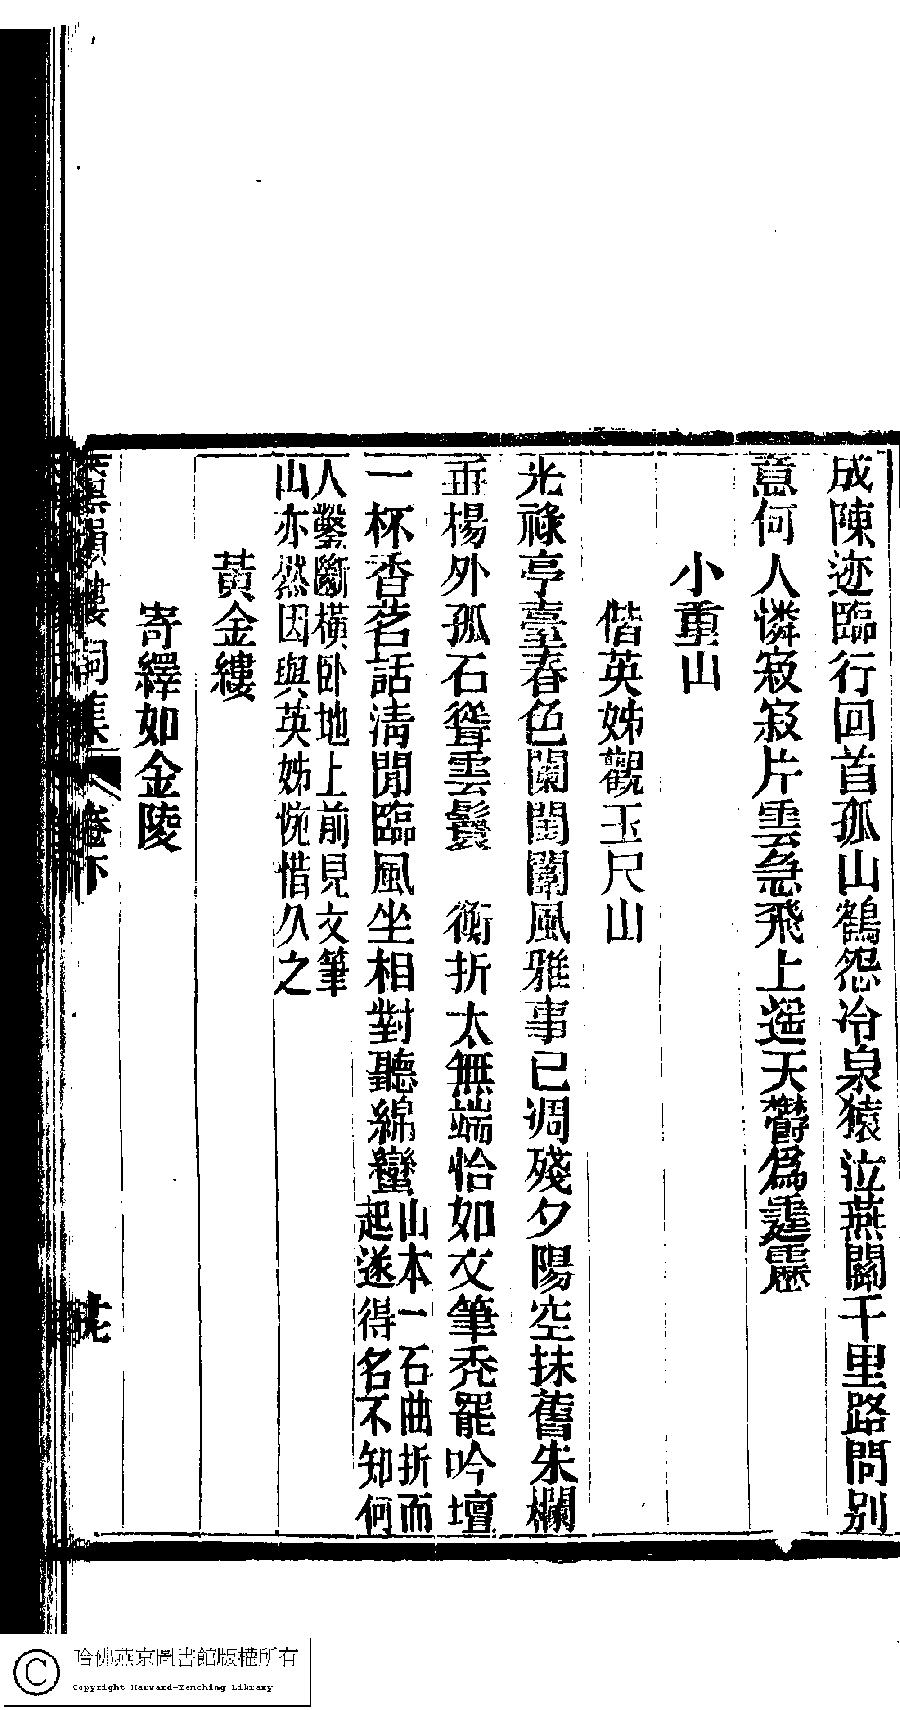 成陳迹臨行回首孤山鶴怨冷泉猿泣燕關千里路問別
意何人憐寂寂片雲急飛上遥天鬱爲靆靆
小重山
偕英姊觀玉尺山
光祿亭臺春色闌閨闈風雅事已凋殘夕陽空抹舊朱欄
垂楊外孤石聳雲鬟　衡折太無端恰如文筆禿罷吟壇
一杯香茗話淸閒臨風坐相對聽綿蠻
山本一石曲折而
起遂得名不知何
人鑿斷橫卧地上前見文筆
山亦然因與英姊惋惜久之
黃金縷
寄繹如金陵
韻樓詞集
卷下
哈佛燕京圖書館版權所有
Copyright Harvard-Yenching Library